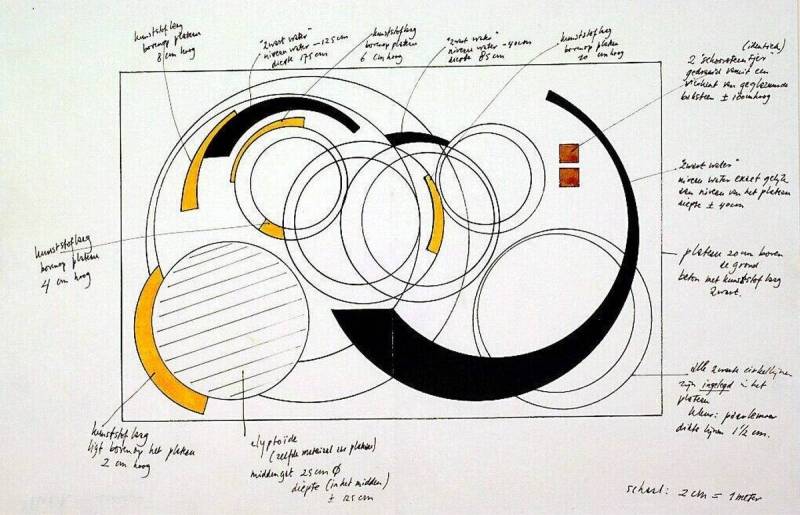 kunststoflaag
bovenop plateau
8 cm hoog
"zwart water"
niveau water -125cm
diepte 175 cm
kunststoflaag
bovenop plateau
6 cm hoog
"zwart water"
niveau water -40cm
diepte 85 cm
kunststoflaag
bovenop plateau
10 cm hoog
(identiek)
2 "schoorsteentjes"
gedraaid vanuit een
vierkant van geglazuurde
baksteen ± 100cm hoog
"zwart water"
niveau water exact gelijk
aan niveau van het plateau
diepte ± 40cm
kunststoflaag
bovenop plateau
4 cm hoog
plateau 20 cm boven
de grond
beton met kunststof laag
zwart.
alle zwarte cirkellijnen
zijn ingelegd in het
plateau
kleur: paarlemoer
dikte lijnen 1½ cm.
kunststoflaag
ligt bovenop het plateau
2 cm hoog
elyptoïde
(zelfde materiaal als plateau)
middengat 25cm Ø
diepte (in het midden)
± 125 cm
schaal: 2 cm = 1 meter